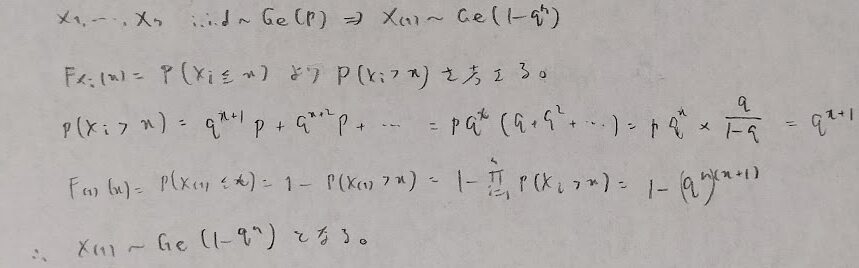 X₁, ⋯, Xₙ i.i.d ~ Ge(p) ⇒ X₍₁₎ ~ Ge(1-qⁿ)
F_{Xᵢ}(x) = P(Xᵢ ≤ x) より P(Xᵢ > x) を考える。
P(Xᵢ > x) = q^{x+1} p + q^{x+2} p + ⋯ = p q^x (q + q² + ⋯) = p q^x × \frac{q}{1-q} = q^{x+1}
F₍₁₎(x) = P(X₍₁₎ ≤ x) = 1 - P(X₍₁₎ > x) = 1 - ∏_{i=1}^{n} P(Xᵢ > x) = 1 - (qⁿ)^{(x+1)}
∴ X₍₁₎ ~ Ge(1-qⁿ) となる。